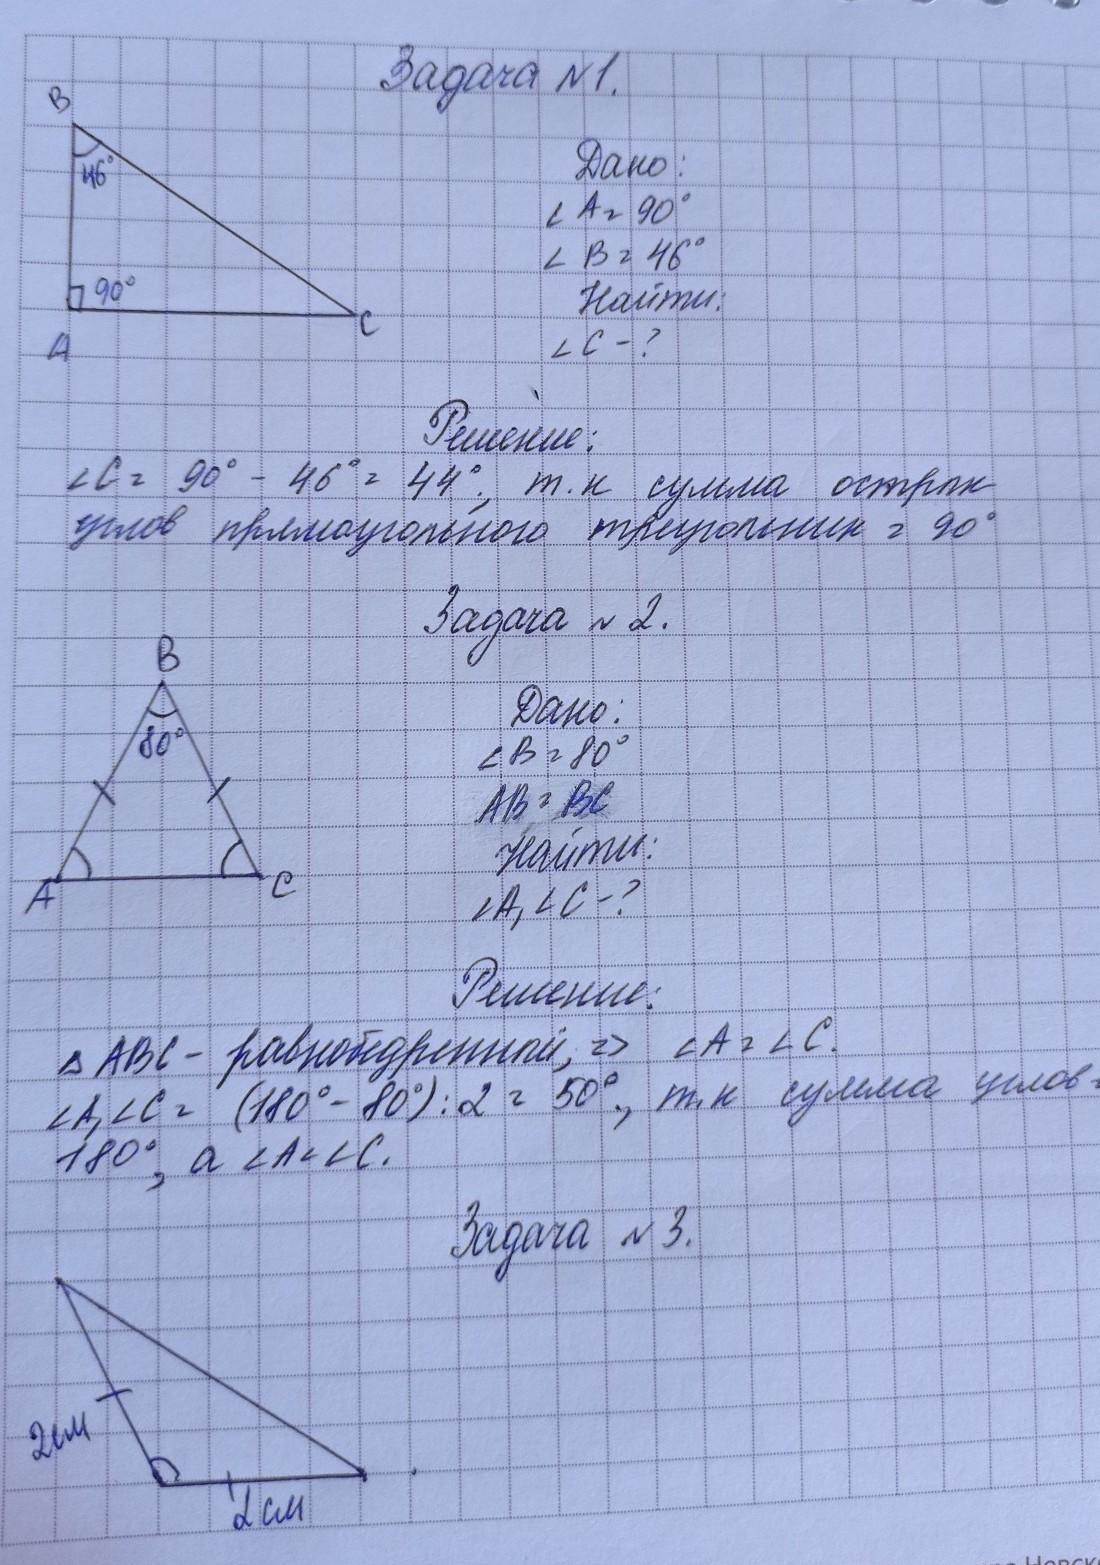 Задача №1.
B
46°
90°
A
C
Дано:
∠A = 90°
∠B = 46°
Найти:
∠C - ?
Решение:
∠C = 90° - 46° = 44°, т.к сумма острых
углов прямоугольного треугольник = 90°
Задача №2.
B
80°
A
C
Дано:
∠B = 80°
AB = BC
Найти:
∠A, ∠C - ?
Решение:
△ABC - равнобедренный, => ∠A = ∠C.
∠A, ∠C = (180° - 80°) : 2 = 50°, т.к сумма углов =
180°, а ∠A = ∠C.
Задача №3.
2см
2см